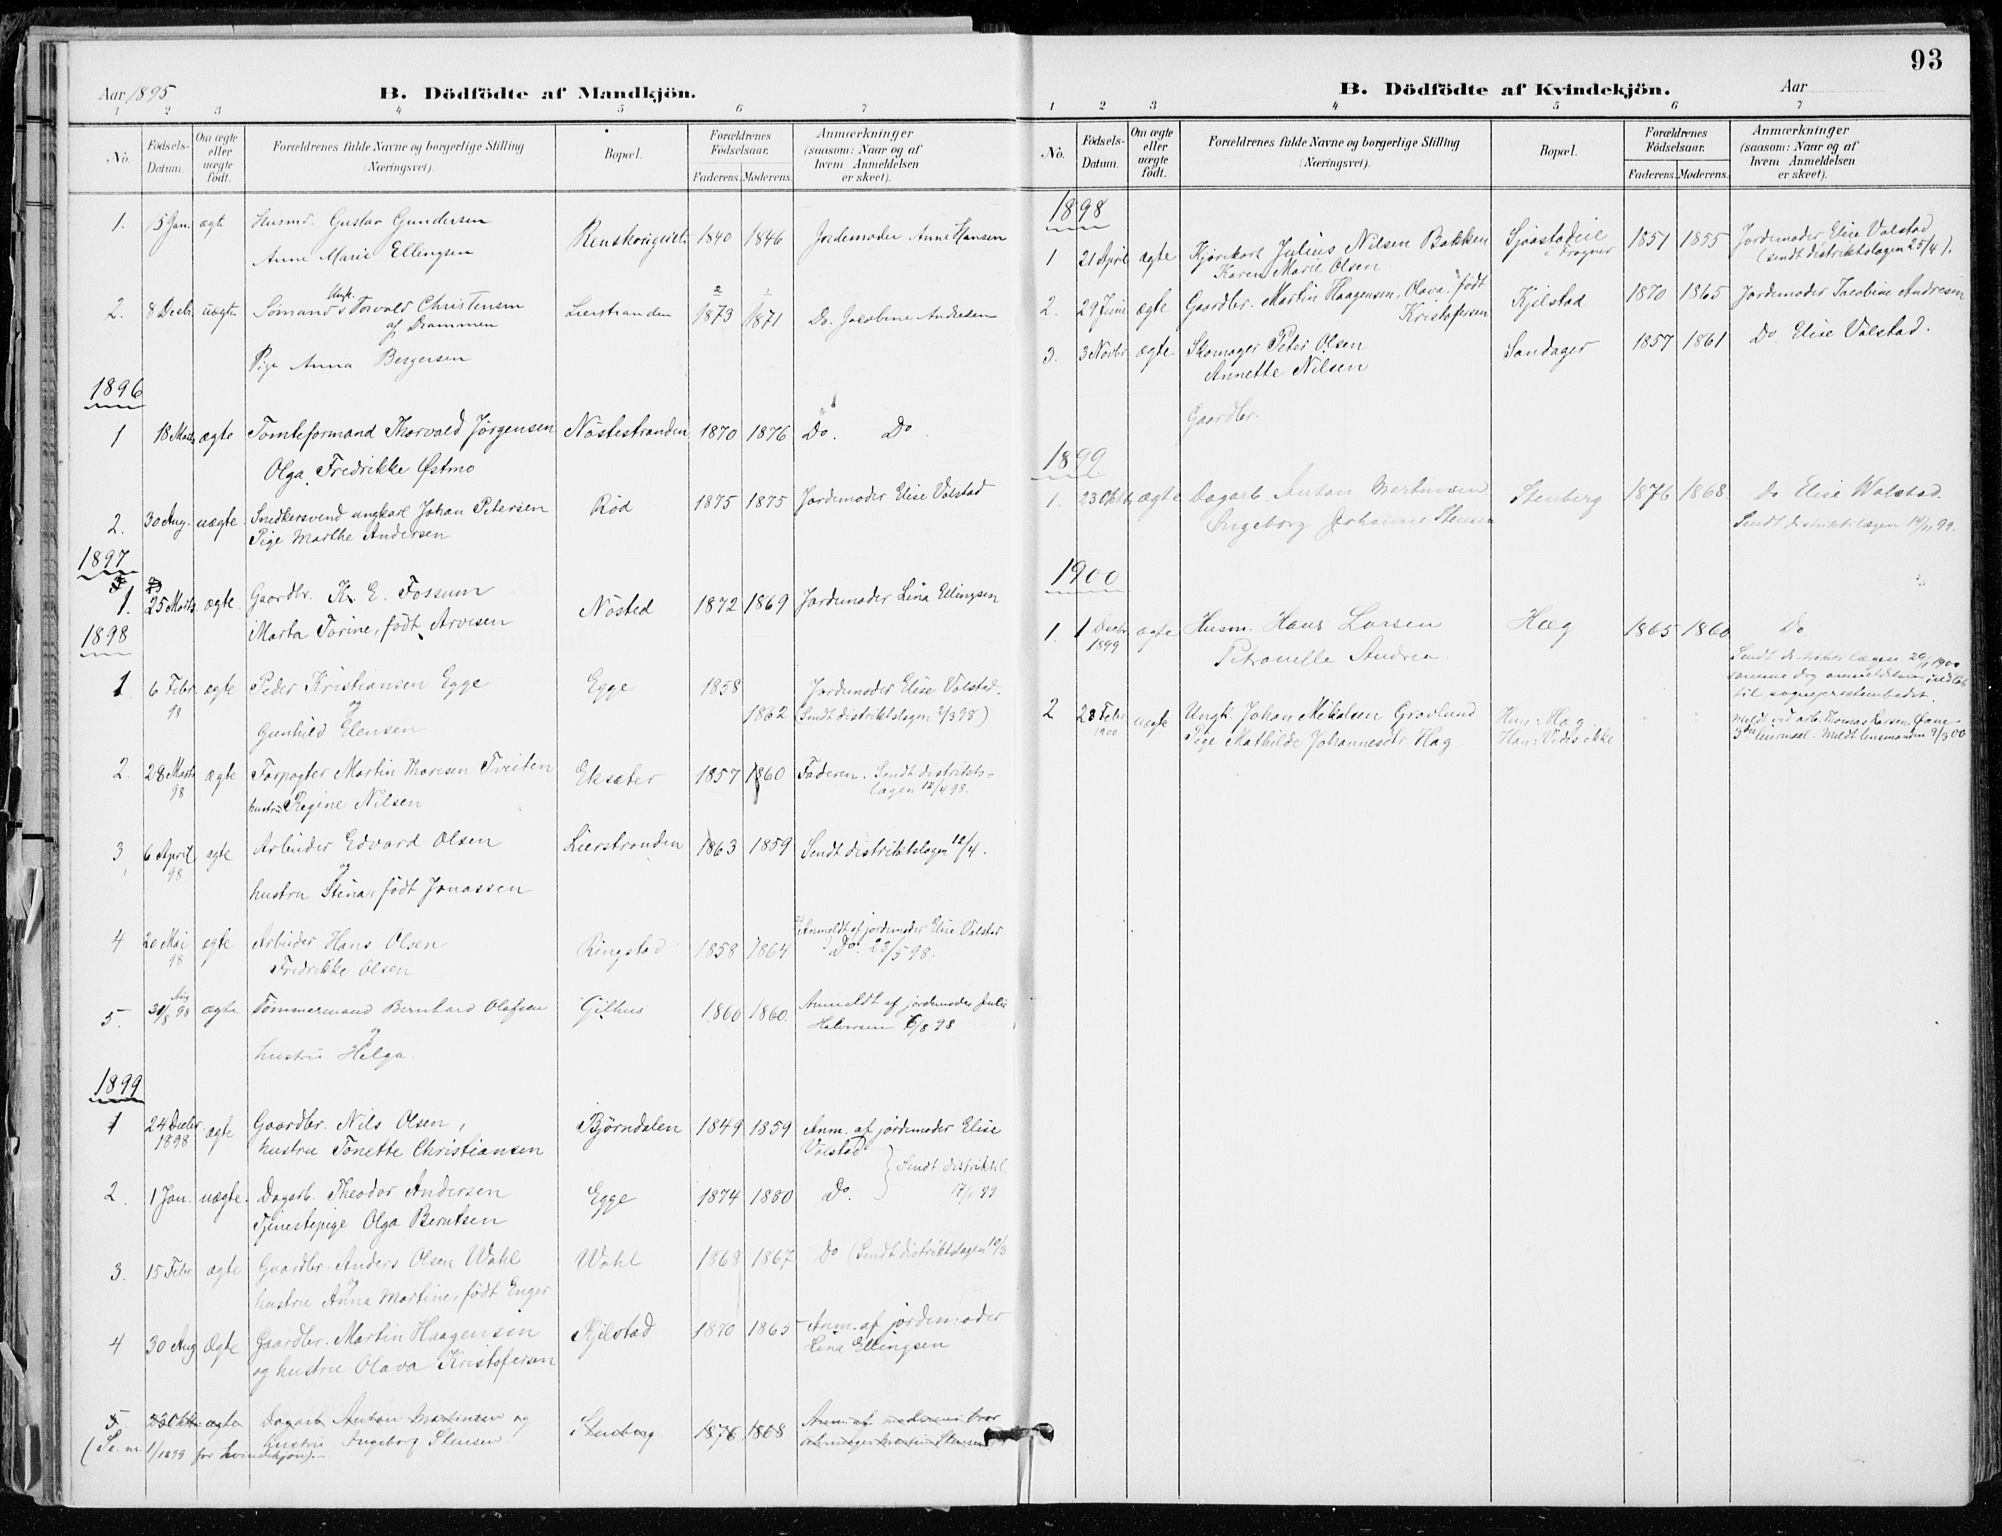 Aar 1895
B. Dödfödte af Mandkjön.
1 2 3 4 5 6 7
No.
Födsels-Datum.
Om ægte eller uægte födt.
Forældrenes fulde Navne og borgerlige Stilling (Næringsvei).
Bopæl.
Forældrenes Födselsaar.
Faderens. Moderens.
Anmærkninger (saasom: Naar og af hvem Anmeldelsen er skeet).
1. 15 Jan. ægte Husmd. Gustav Gundersen 1840 1846 Jordemoder Anne Hansen
Anne Marie Ellingsen
2. 8 Decb. uægte Sömand Ungk. Torvald Christensen Lierstranden 1873 1871 Do. Jacobine Andresen
af Drammen
Pige Anna Bergersen
1896
1 18 Marts ægte Tomteformand Thorvald Jörgensen Nöstestranden 1870 1876 Do. Do
Olga Fredrikke Østmo
2. 30 Aug. uægte Snedkersvend ungkarl Johan Petersen Röd 1875 1875 Jordemoder Elise Valstad
Pige Marthe Andersen
1897
1. 25 Marts ægte Gaardbr. K. E. Fossum Nösted 1872 1869 Jordemoder Lina Ellingsen
Marta Torine, født Arvesen
1898
1 6 Febr 98 ægte Peder Kristiansen Egge Egge 1858 Jordemoder Elise Valstad.
og 1862 (Sendt distriktslægen 2/3 98)
Gunhild Elensen
2. 28 Marts 98 ægte Forpagter Martin Thoresen Tveiten Eksæter 1857 1860 Faderen. Sendt distrikts-
hustru Regine Nilsen lægen 12/4 98.
3, 6 April 98 ægte Arbeider Edvard Olsen Lierstranden 1863 1859 Sendt distriktslægen 12/4.
og
hustru Stina, født Jonassen
4 20 Mai 98 ægte Arbeider Hans Olsen Ringstad 1858 1864 Anmeldt af jordemoder Elise Valstad
Fredrikke Olsen Do. 23/5 98.
5. 31/8 98 Aug ægte Tømmermand Bernhard Olafsen Gilhus 1860 1860. Anmeldt af jordemoder Julie
og Halvorsen 6/8 98
hustru Helga.
1899
1 24 Decbr 1898 ægte Gaardbr. Nils Olsen, Björndalen 1849 1859 Anm. af jordemoder Elise
hustru Tonette Christiansen Valstad
Sendt distriktsl.
2. 1 Jan. uægte. Dagarb. Theodor Andersen Egge 1874 1880 Do. 17/1 99
Tjenestepige Olga Berntsen
3. 15 Febr ægte Gaardbr. Anders Olsen Wahl Wahl 1868 1867 Do (Sendt distriktslægen 10/3
og
hustru Anna Martine, født Enger
4 30 Aug Ægte Gaardbr. Martin Haagensen Kjilstad 1870 1865 Anm. af jordemoder
og hustru Olava Kristofersen Lina Ellingsen
5 Okt ægte Dagarb Anton Martinsen og Stenberg. 1876 1868 Anm. af moderens bror
hustru Ingeborg Stensen Martin Stensen
(Se nr. 1/1899 for kvindekjøn).
93
B. Dödfödte af Kvindekjön.
Aar
1 2 3 4 5 6 7
No.
Födsels-Datum.
Om ægte eller uægte födt.
Forældrenes fulde Navne og borgerlige Stilling (Næringsvei).
Bopæl.
Forældrenes Födselsaar.
Faderens. Moderens.
Anmærkninger (saasom: Naar og af hvem Anmeldelsen er skeet).
1898
1 21 April ægte Kjørekarl Julius Nilsen Bakken Sjaastadeie 1851 1855 Jordemoder Elise Valstad
Karen Marie Olsen i Frogner (sendt distriktslægen 25/4).
2. 29 Juni ægte Gaardbr. Martin Haagensen, Olava født Kjilstad 1870 1865 Jordemoder Jacobine Andresen
Kristofersen
3. 3 Novbr ægte Skomager Peter Olsen Sandager 1857 1861 Do. Elise Valstad.
Annette Nilsen
Gaardbr.
1899.
1. 23 Oktb ægte Dagarb. Anton Martinsen Stenberg 1876 1868. Do Elise Walstad.
Ingeborg Johanne Stensen Sendt distriktslægen 14/11 99.
1900
1. 1 Decbr 1899 ægte Husm. Hans Larsen Hæg 1865 1860 Do.
Petronelle Andrea. Sendt distriktslægen 20/1 1900
samme dag anmeldelsen indløb
til sognepræstembedet.
2 23 Febr 1900 uægte Ungk. Johan Mikalsen Gravlund Hun: Hag. Meldt ved arb. Thomas Larsen
Pige Mathilde Johannesdtr. Hag. Han: Vides ikke Meldt lensmanden 9/3 00